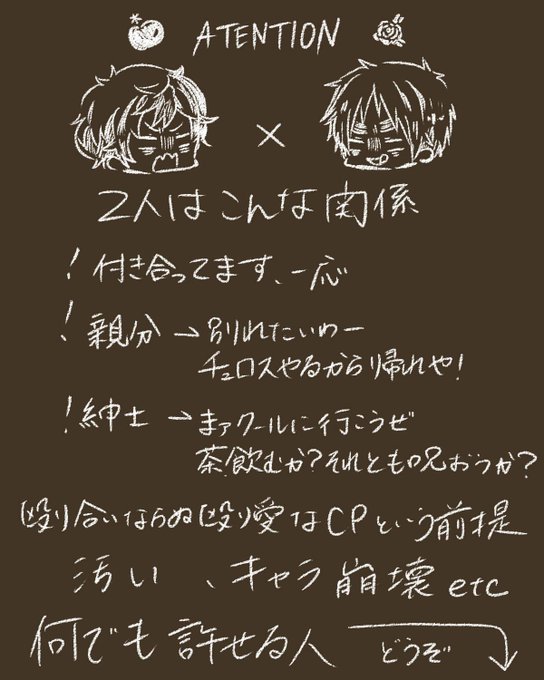 ATENTION
×
2人はこんな関係
! 付き合ってます、一応
! 親分 → 別れたいわー
チュロスやるから帰れや!
! 紳士 → まァクールに行こうぜ
茶飲むか?それとも呪おうか?
殴り合いならぬ殴り愛なCPという前提
汚い、キャラ崩壊etc
何でも許せる人
どうぞ